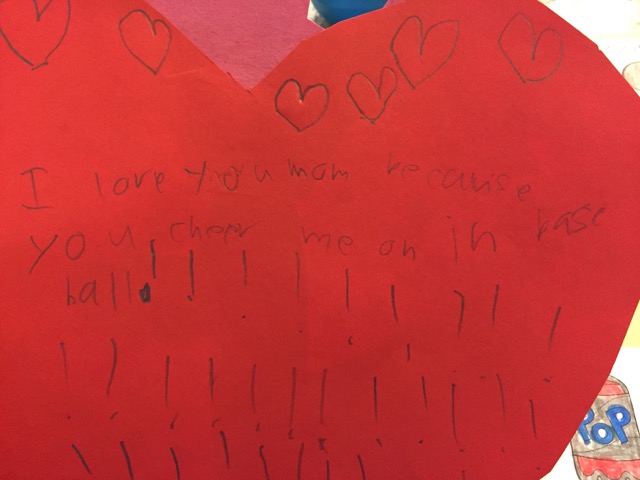 I love you mom because
you cheer me on in base
ball!!!!!!!!!
!!!!!!!!!!!!!
!!!!!!!!!!
POP